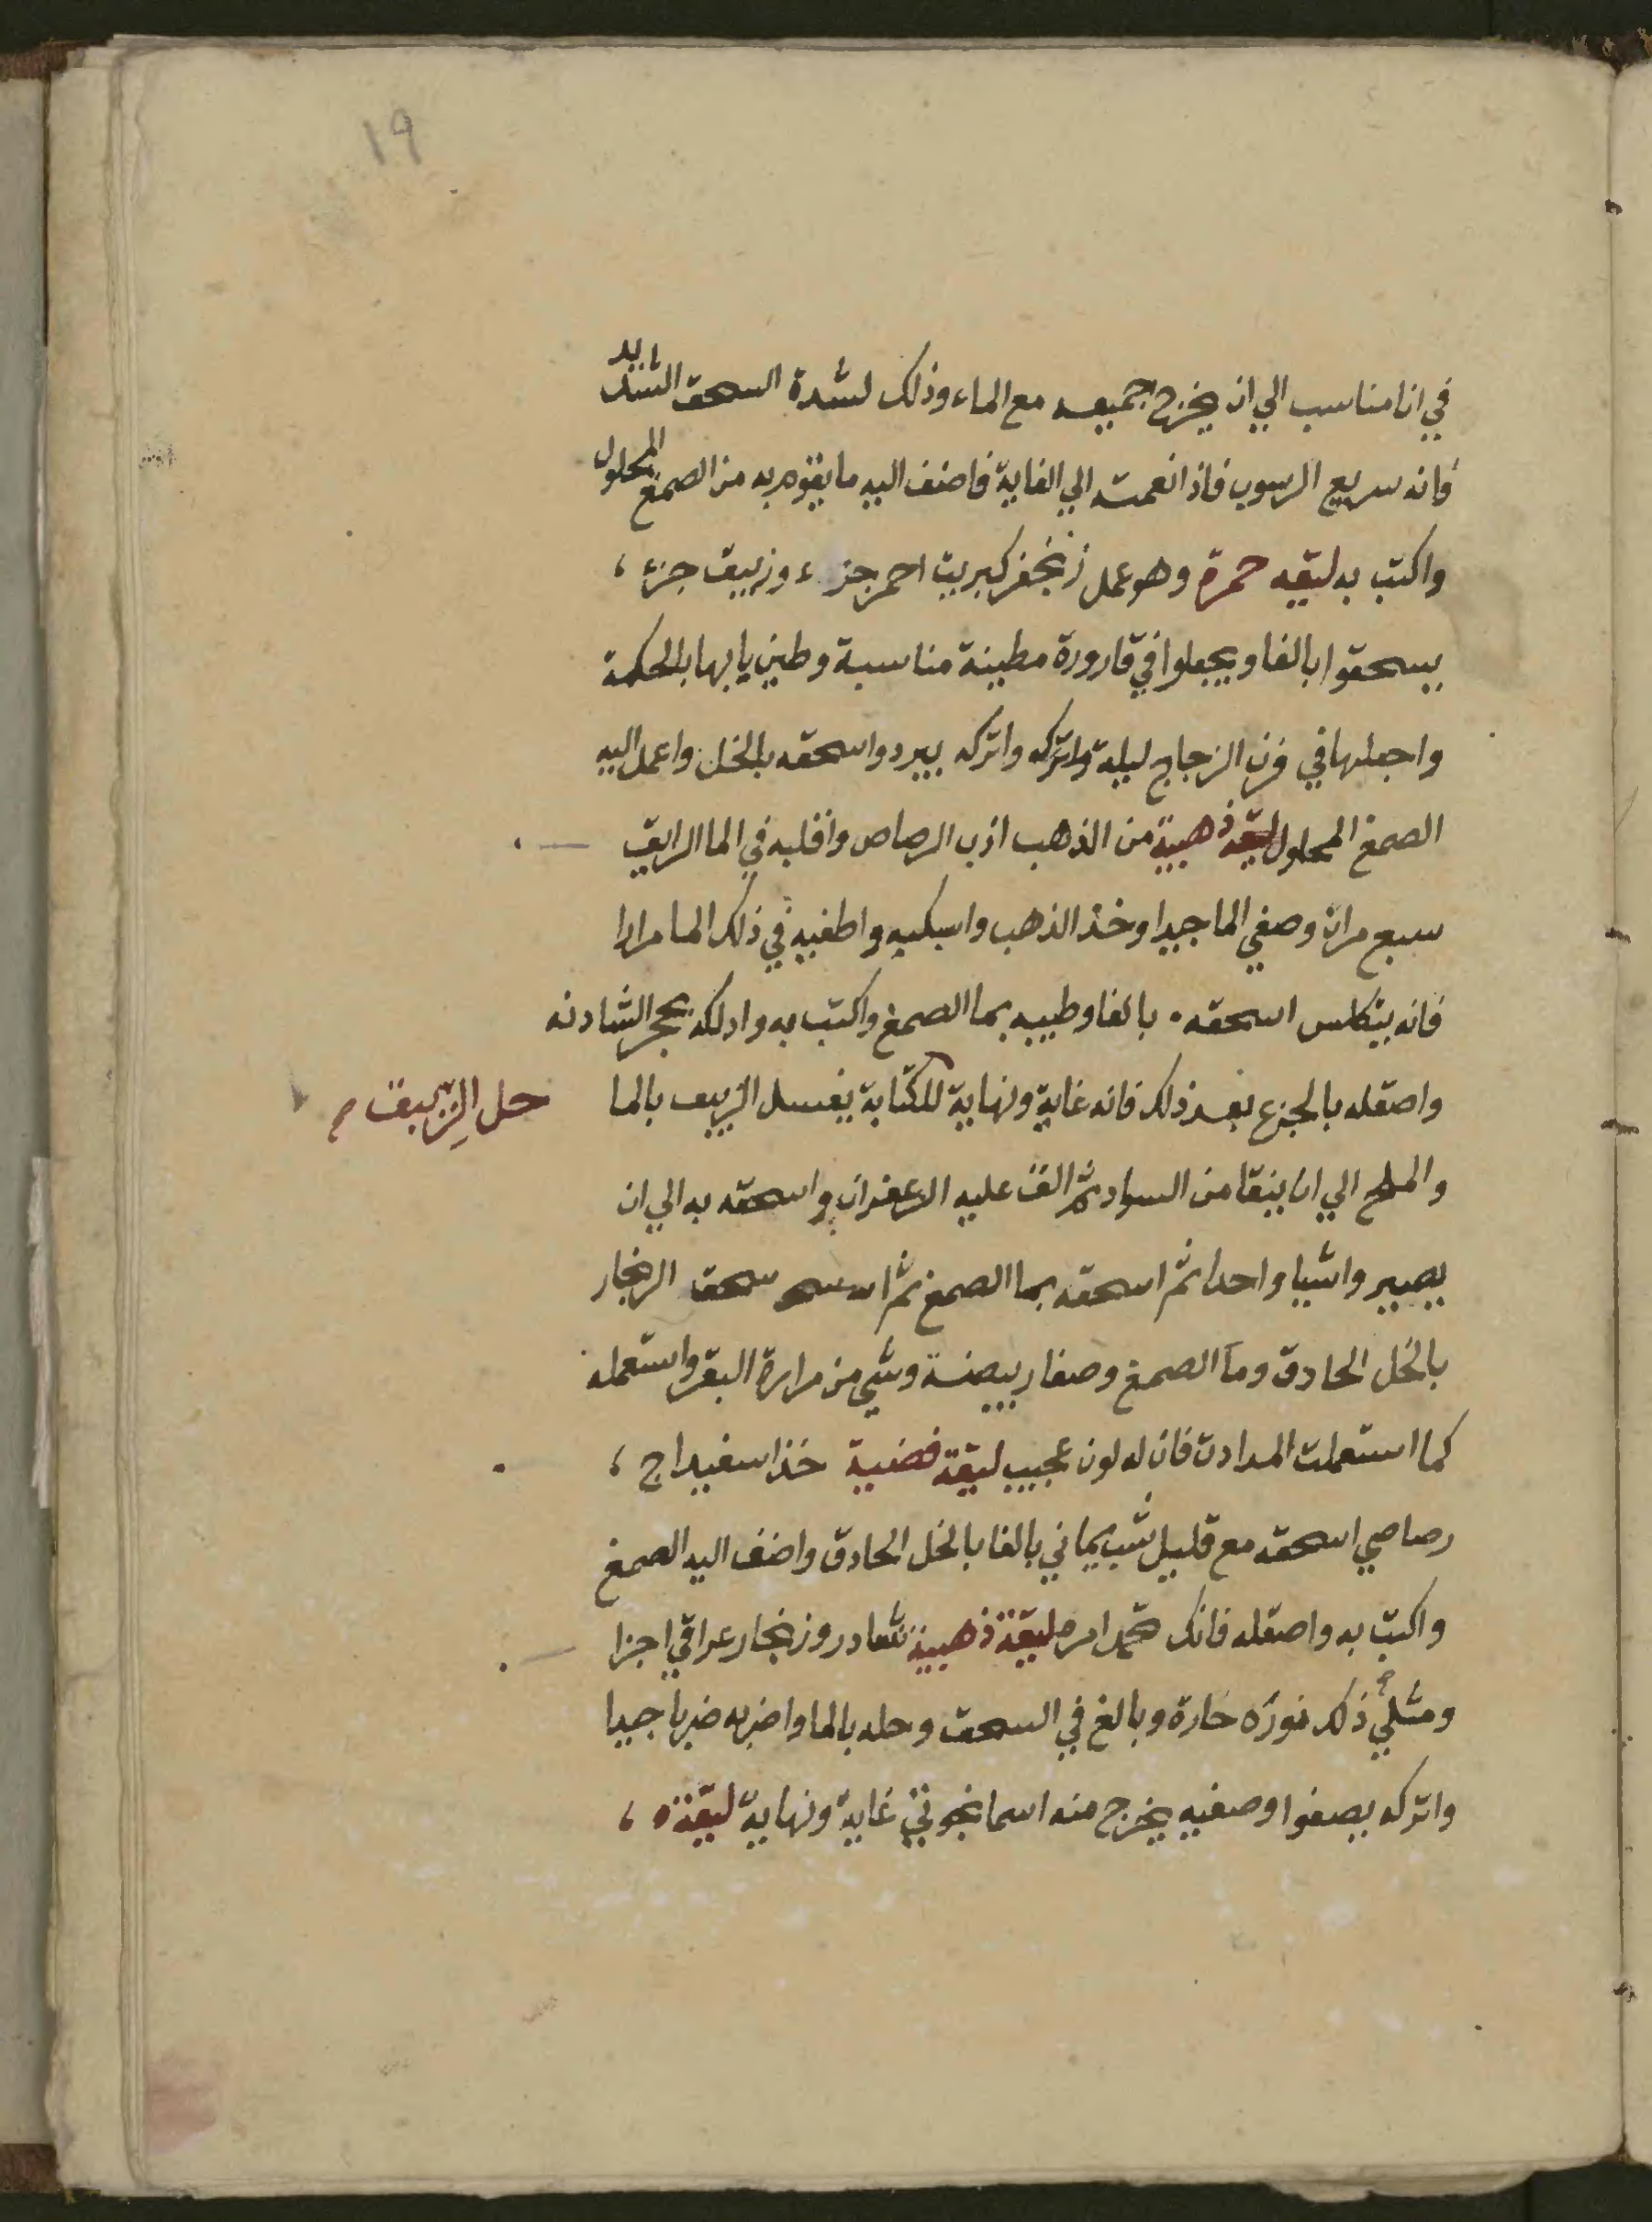 ١٩
في انا مناسب الي ان يخرج جميعه مع الماء وذلك لشدة السحق الشديد
فانه سريع الرسوب فاذا نعمته الي الغاية فاضف اليه ما يقوم به من الصمغ المحلول
واكتب به ليقه حمرة وهو عمل زنجفر كبريت احمر جزء وزيبق جزء ،
يسحقوا بالغا ويجعلوا في قارورة مطينة مناسبة وطين يابها بالحكمة
واجعلها في فرن الزجاج ليلة واتركه واتركه يبرد واسحقه بالخل واعمل اليه
الصمغ المحلول ليقه ذهبية من الذهب اذب الرصاص واقلبه في الما الرايق
سبع مرات وصفي الما جيدا وخذ الذهب واسبكيه واطفيه في ذلك الما مرارا
فانه يتكلس اسحقه . بالغا وطيبه بما الصمغ واكتب به وادلكه بحجر الشادنه
واصقله بالجزع بعد ذلك فانه غاية ونهاية للكتابة يغسل الزيبق بالما
حل الزيبق م
والملح الي ان ينقا من السواد ثم الق عليه الزعفران واسحقه به الي ان
يصير واشيا واحدا ثم اسحقه بما الصمغ ثم سحق الزنجار
بالخل الحادق وما الصمغ وصفار بيضة وشي من مرارة البقر واستعمله
كما استعملت المدادن فان له لون عجيب ليقة فضية خذ اسفيداج ،
رصاصي اسحقه مع قليل شب يماني بالغا بالخل الحادق واضف اليه الصمغ
واكتب به واصقله فانك تحمد امره ليقة ذهبية نشادر وزنجار عراقي اجزا
ومثلي ذلك نوره حارة وبالغ في السحق وحله بالما واضربه ضربا جيدا
واتركه يصفوا وصفيه يخرج منه اسمانجوني غاية ونهاية ليقة ،